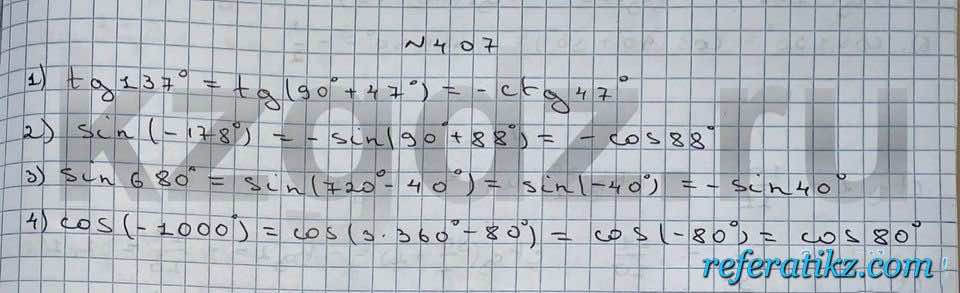 №407
1) tg137° = tg(90°+47°) = -ctg47°
2) sin(-178°) = -sin(90°+88°) = -cos88°
3) sin680° = sin(720°-40°) = sin(-40°) = -sin40°
4) cos(-1000°) = cos(3·360°-80°) = cos(-80°) = cos80°
kzgdz.ru
referatikz.com